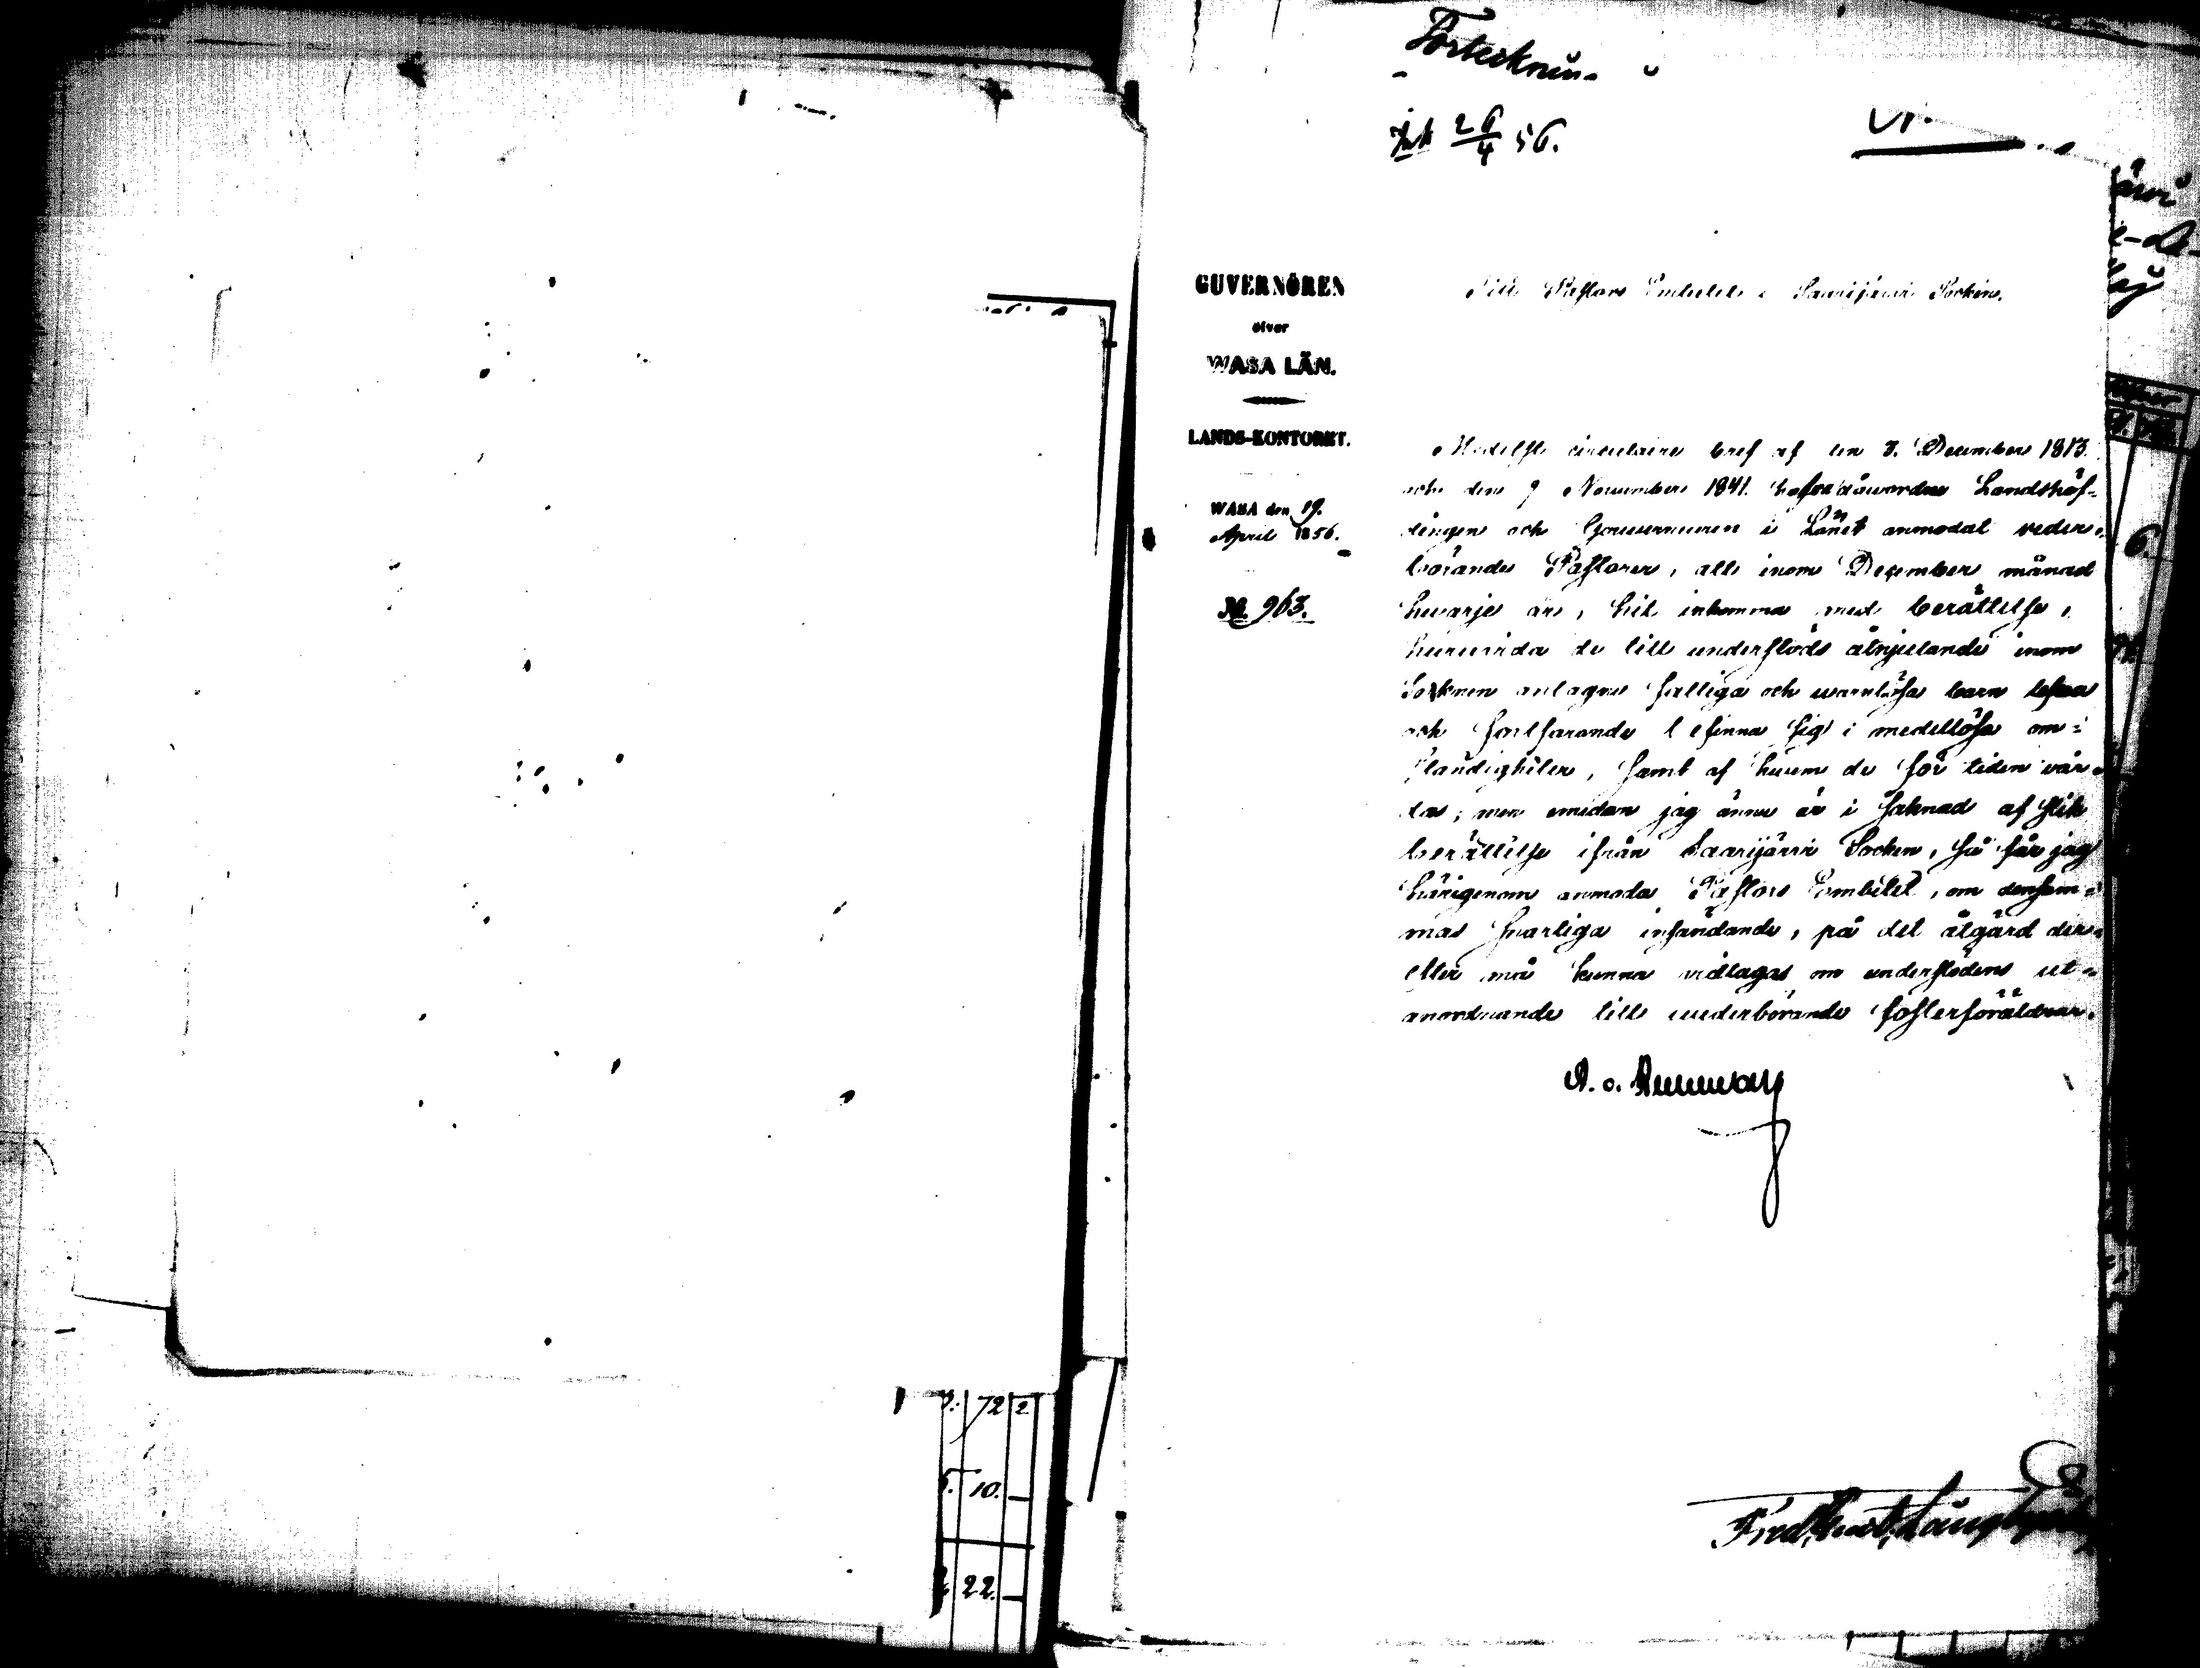 Förteckning
Ink 26/4 56.
GUVERNÖREN
öfver
WASA LÄN.
LANDS-KONTORET.
WASA den 19.
April 1856.
No. 963.
Till Pastors Embetet i Saarijärvi Socken.
Medelst circulaire bref af den 3. December 1813.
och den 9 November 1841. hafva dåwarden Landshöf-
dingen och Gouverneuren i Länet anmodat veder-
börande Pastorer, att inom December månad
hwarje år, hit inkomma med berättelse,
huruvida de till understöds åtnjutande inom
Socknen antagne fattiga och warnlösa barn lefva
och fortfarande befinna sig i medellösa om-
ständigheter, samt af hwem de för tiden vår-
das; men emedan jag ännu är i saknad af slik
berättelse ifrån Saarijärvi Socken, så får jag
härigenom anmoda Pastors Embetet, om densam-
mas snarliga insändande, på det åtgärd der-
efter må kunna vidtagas om understödens ut-
anordnande till wederbörande fosterföräldrar.
72 2
10.
22.